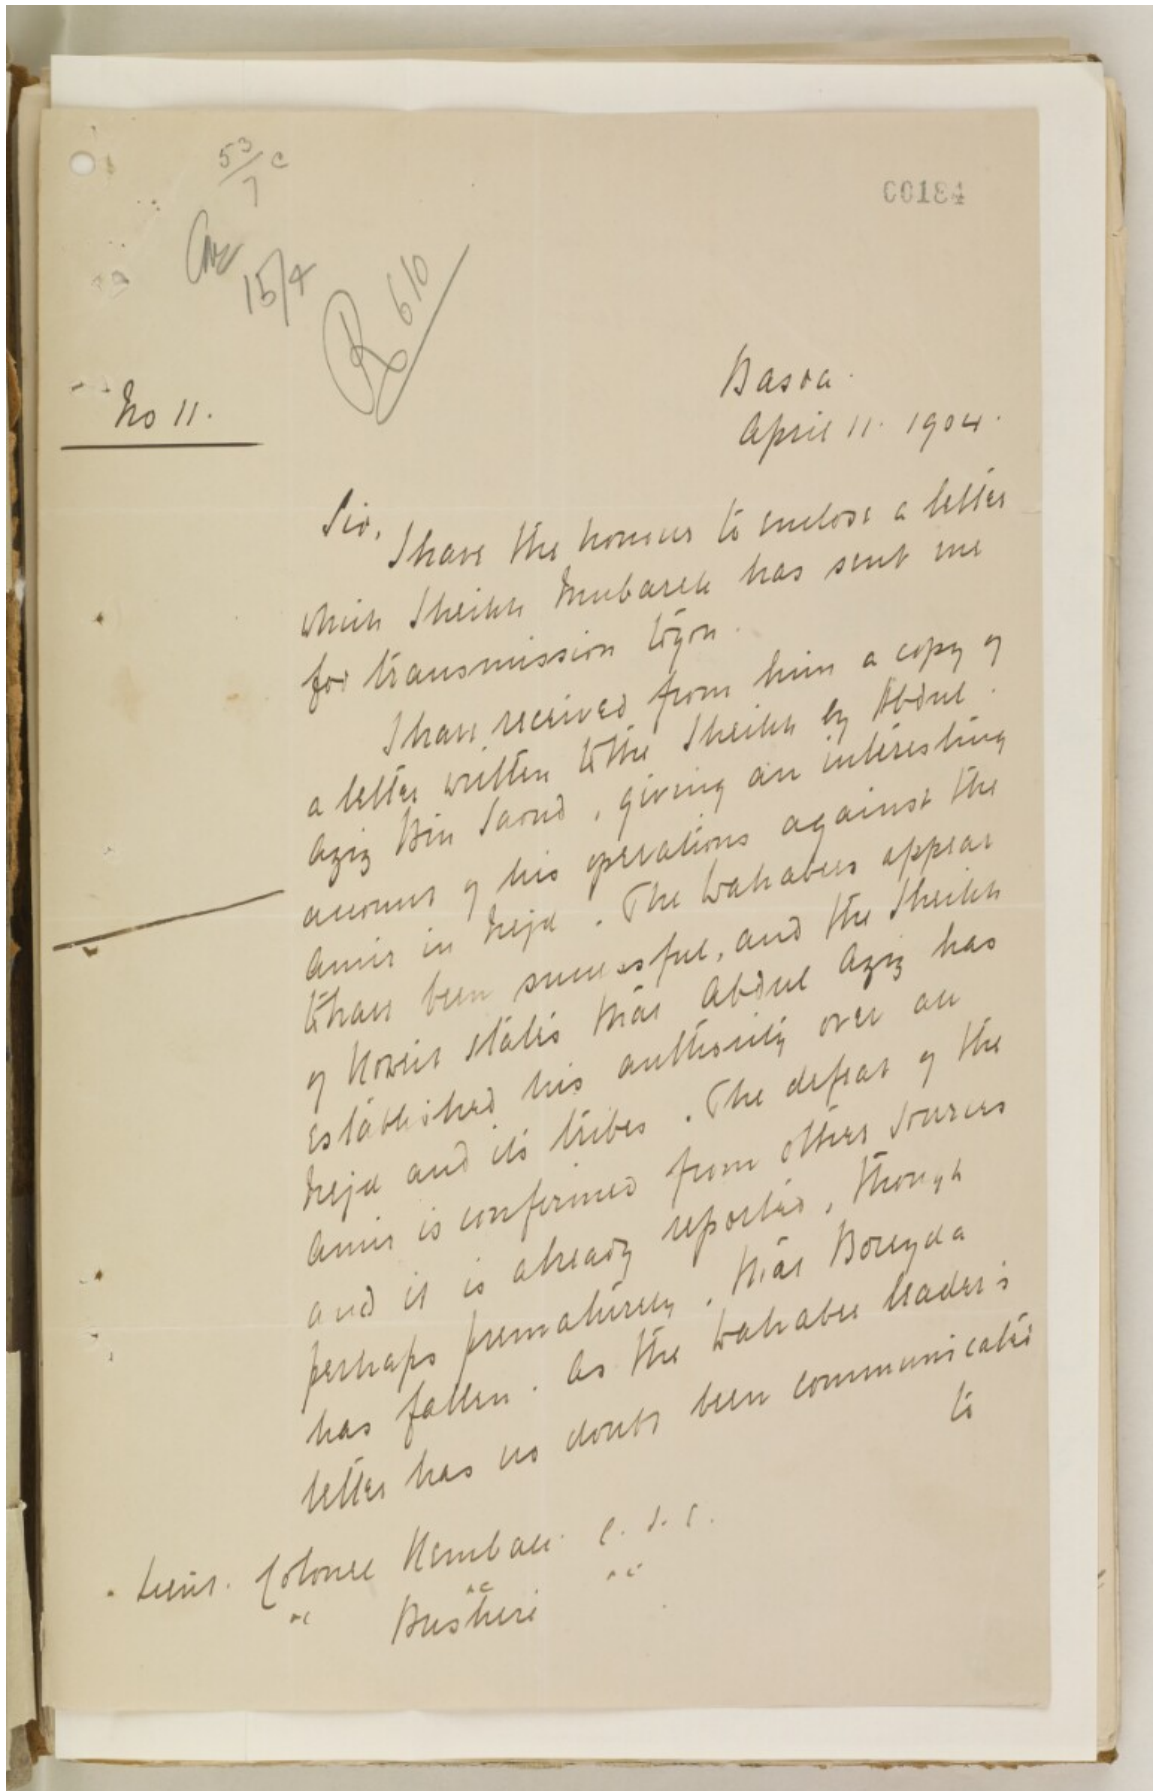 53/7 C
15/4
R 610
00184
No 11.
Basra.
April 11. 1904.
Sir,
I have the honour to enclose a letter
which Sheikh Mubarek has sent me
for transmission to you.
I have received from him a copy of
a letter written to the Sheikh by Abdul
Aziz Bin Saoud, giving an interesting
account of his operations against the
Amir in Nejd. The Wahabees appear
to have been successful, and the Sheikh
of Koweit states that Abdul Aziz has
established his authority over all
Nejd and its tribes. The defeat of the
Amir is confirmed from other sources
and it is already reported, though
perhaps prematurely, that Boreyda
has fallen. As the Wahabee leader's
letter has no doubt been communicated
to
Lieut. Colonel Kemball C.I.E.
&c &c &c
Bushire